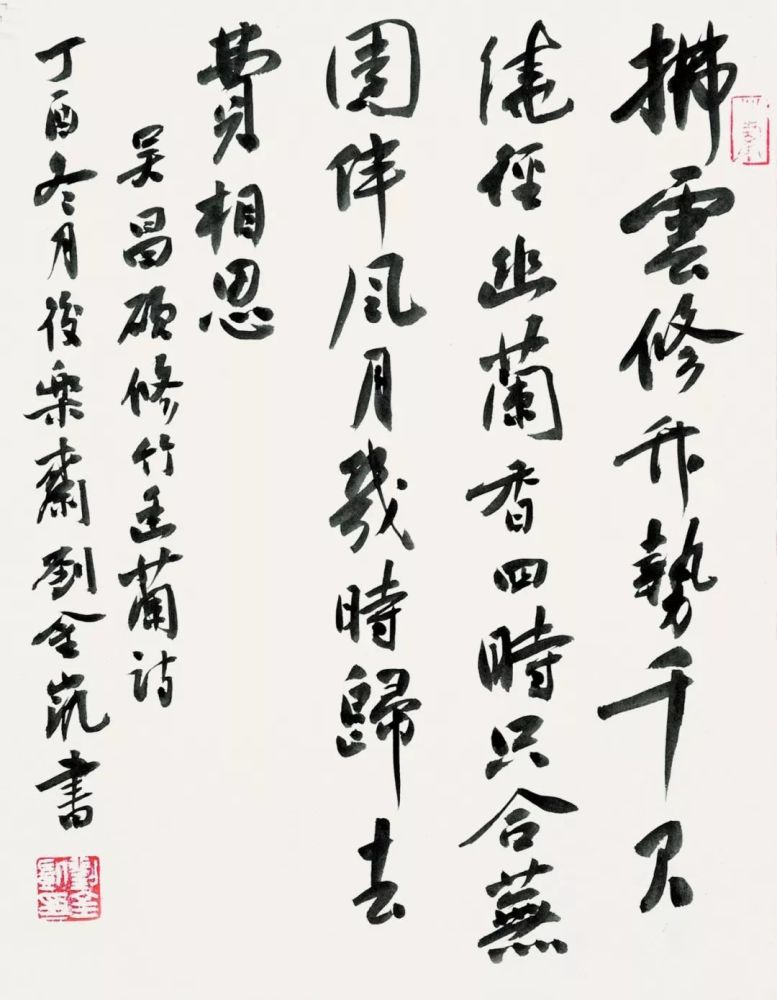 拂雲修竹勢千尺
繞徑幽蘭香四時只合蕪
園伴風月幾時歸去
費相思
吴昌碩修竹幽蘭詩
丁酉冬月後樂齋劉金凱書